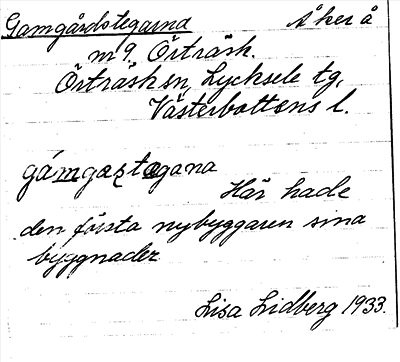 Gamgårdstegarna Åker å
nr 9, Örträsk.
Örträsk sn, Lycksele tg,
Västerbottens l.
gámgaʐtegana
Här hade
den första nybyggaren sina
byggnader
Lisa Lidberg 1933.